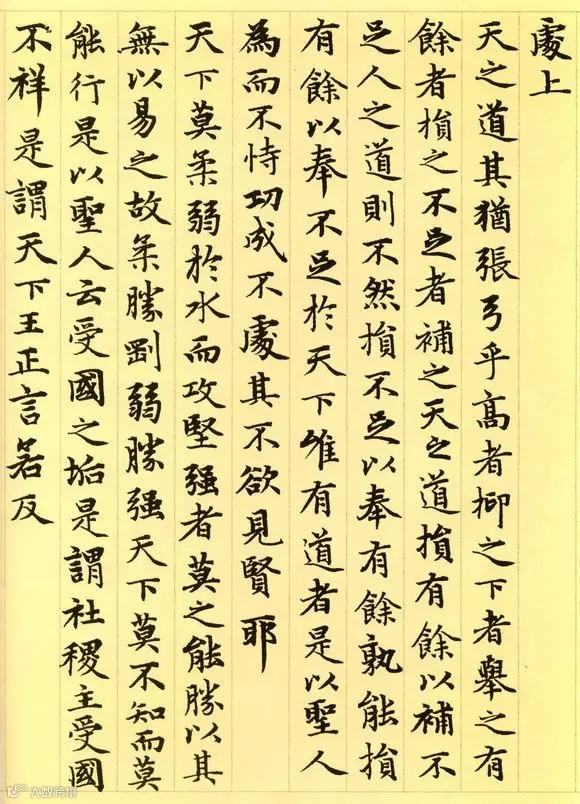 處上
天之道其猶張弓乎高者抑之下者舉之有
餘者損之不足者補之天之道損有餘以補不
足人之道則不然損不足以奉有餘孰能損
有餘以奉不足於天下唯有道者是以聖人
為而不恃功成不處其不欲見賢耶
天下莫柔弱於水而攻堅强者莫之能勝以其
無以易之故柔勝剛弱勝强天下莫不知而莫
能行是以聖人云受國之垢是謂社稷主受國
不祥是謂天下王正言若反
大蝦跨境